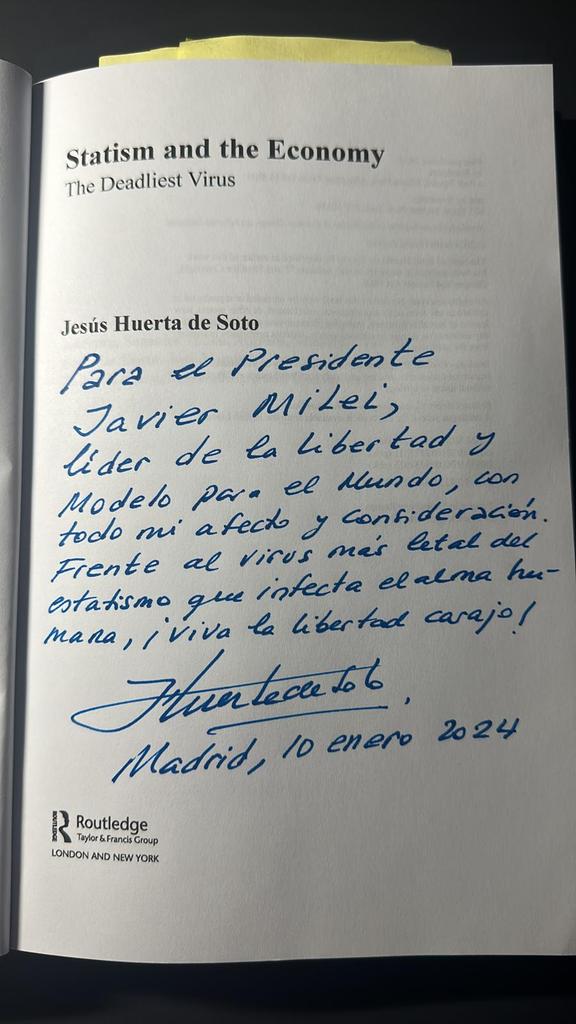 Statism and the Economy
The Deadliest Virus
Jesús Huerta de Soto
Para el Presidente
Javier Milei,
líder de la libertad y
Modelo para el Mundo, con
todo mi afecto y consideración.
Frente al virus más letal del
estatismo que infecta el alma hu-
mana, ¡viva la libertad carajo!
JHuerta de Soto
Madrid, 10 enero 2024
R Routledge
Taylor & Francis Group
LONDON AND NEW YORK